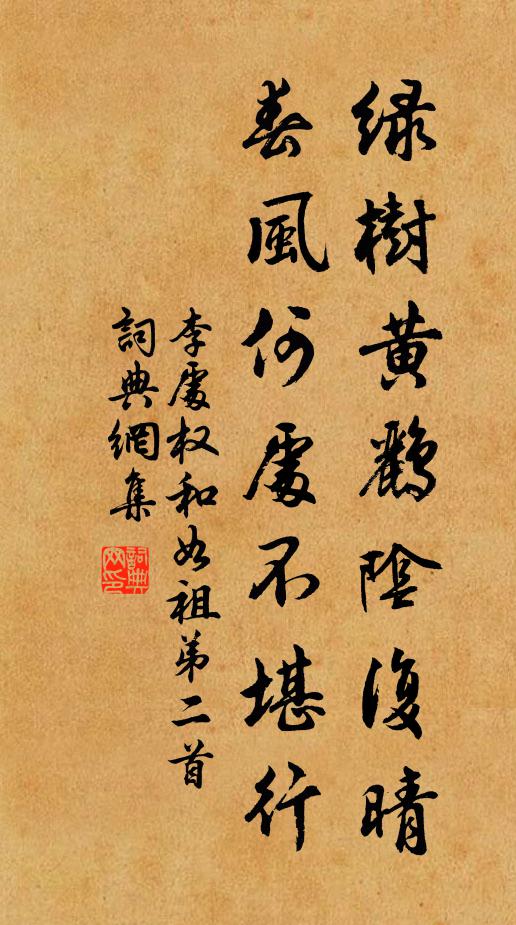 緑樹黄鸝陰復晴
春風何處不堪行
李處权和如祖弟二首
詞典網集
詞典網印